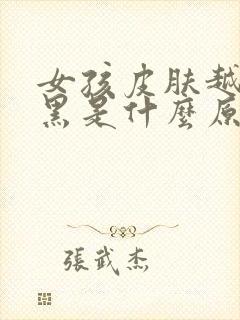 女孩皮肤越
黑是什麼原
張武杰